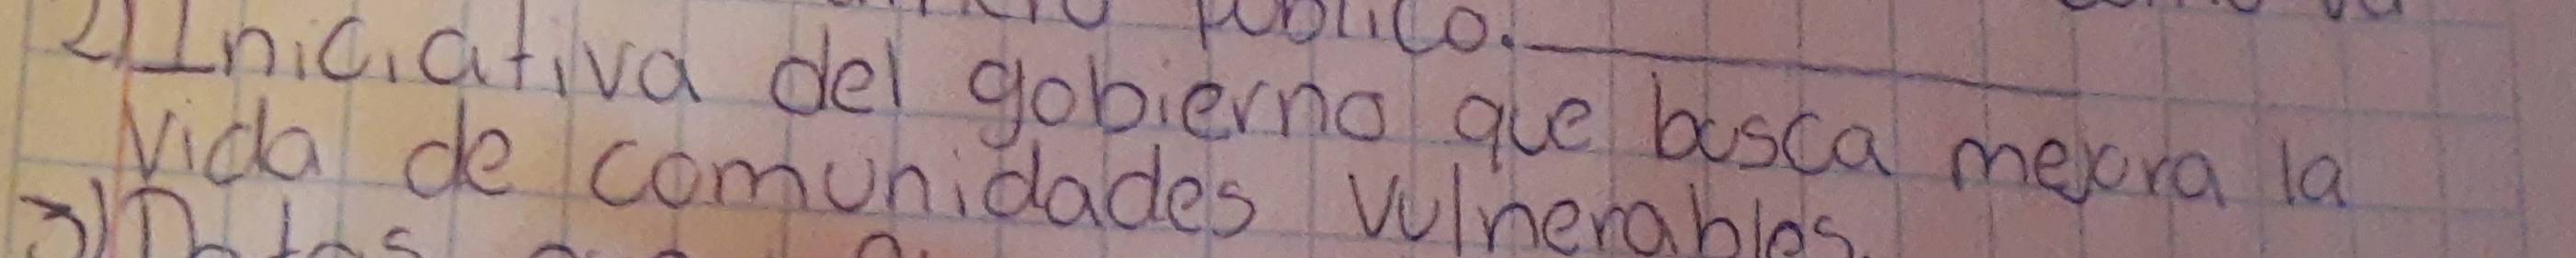 público.
2) Iniciativa del gobierno que busca mejora la
vida de comunidades vulnerables.
3) Datos